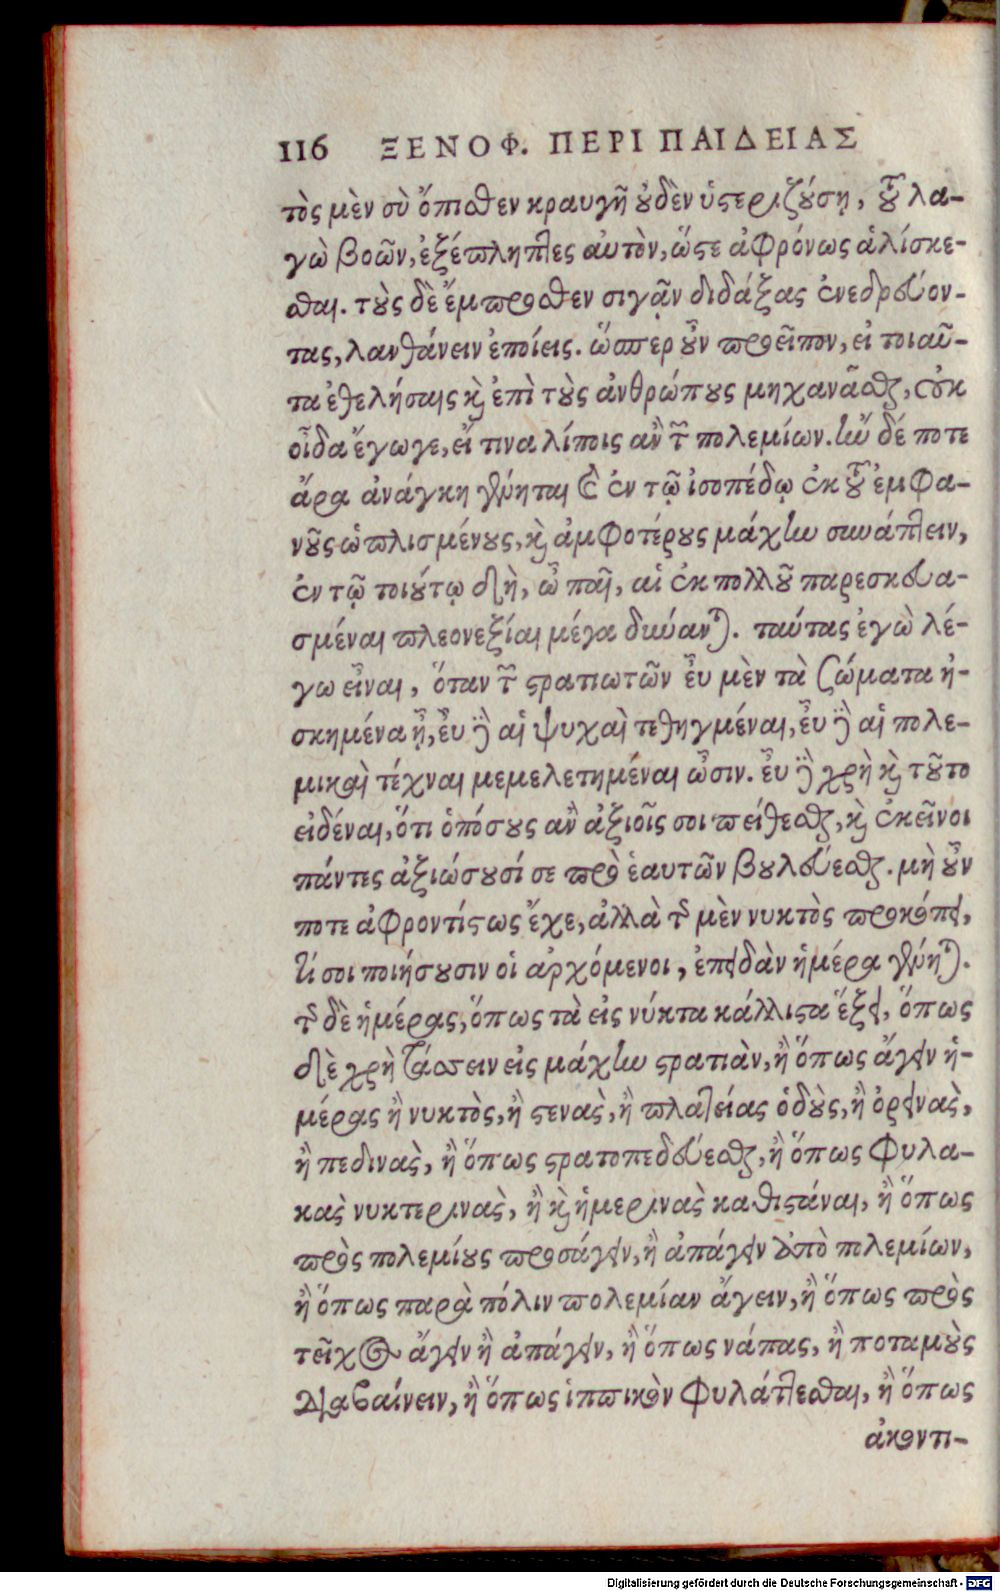 116 ΞΕΝΟΦ. ΠΕΡΙ ΠΑΙΔΕΙΑΣ
τὸς μὲν σὺ ὄπισθεν κραυγῇ οὐδὲν ὑστεριζούσῃ, τοῦ λα-
γὼ βοῶν, ἐξέπληττες αὐτὸν, ὥστε ἀφρόνως ἁλίσκε-
σθαι. τοὺς δὲ ἔμπροσθεν σιγᾷν διδάξας ἐνεδρεύον-
τας, λανθάνειν ἐποίεις. ὥσπερ οὖν προεῖπον, εἰ τοιαῦ-
τα ἐθελήσαις καὶ ἐπὶ τοὺς ἀνθρώπους μηχανᾶσθαι, οὐκ
οἶδα ἔγωγε, εἴ τινα λίποις ἂν τῶν πολεμίων. ἢν δέ ποτε
ἄρα ἀνάγκη γένηται καὶ ἐν τῷ ἰσοπέδῳ ἐκ τοῦ ἐμφα-
νοῦς ὡπλισμένους, καὶ ἀμφοτέρους μάχην συνάπτειν,
ἐν τῷ τοιούτῳ δὴ, ὦ παῖ, αἱ ἐκ πολλοῦ παρεσκευα-
σμέναι πλεονεξίαι μέγα δύνανται. ταύτας ἐγὼ λέ-
γω εἶναι, ὅταν τῶν στρατιωτῶν εὖ μὲν τὰ σώματα ἠ-
σκημένα ᾖ, εὖ δὲ αἱ ψυχαὶ τεθηγμέναι, εὖ δὲ αἱ πολε-
μικαὶ τέχναι μεμελετημέναι ὦσιν. εὖ δὲ χρὴ καὶ τοῦτο
εἰδέναι, ὅτι ὁπόσους ἂν ἀξιοῖς σοι πείθεσθαι, καὶ ἐκεῖνοι
πάντες ἀξιώσουσί σε πρὸ ἑαυτῶν βουλεύεσθαι. μὴ οὖν
ποτε ἀφροντίστως ἔχε, ἀλλὰ τῆς μὲν νυκτὸς προσκόπει,
τί σοι ποιήσουσιν οἱ ἀρχόμενοι, ἐπειδὰν ἡμέρα γένηται.
τῆς δὲ ἡμέρας, ὅπως τὰ εἰς νύκτα κάλλιστα ἕξει, ὅπως
δὲ χρὴ τάσσειν εἰς μάχην στρατιὰν, ἢ ὅπως ἄγειν ἡ-
μέρας ἢ νυκτὸς, ἢ στενὰς, ἢ πλατείας ὁδοὺς, ἢ ὀρεινὰς,
ἢ πεδινὰς, ἢ ὅπως στρατοπεδεύεσθαι, ἢ ὅπως φυλα-
κὰς νυκτερινὰς, ἢ καὶ ἡμερινὰς καθιστάναι, ἢ ὅπως
πρὸς πολεμίους προσάγειν, ἢ ἀπάγειν ἀπὸ πολεμίων,
ἢ ὅπως παρὰ πόλιν πολεμίαν ἄγειν, ἢ ὅπως πρὸς
τεῖχος ἄγειν ἢ ἀπάγειν, ἢ ὅπως νάπας, ἢ ποταμοὺς
διαβαίνειν, ἢ ὅπως ἱππικὸν φυλάττεσθαι, ἢ ὅπως
ἀκοντι-
Digitalisierung gefördert durch die Deutsche Forschungsgemeinschaft - DFG